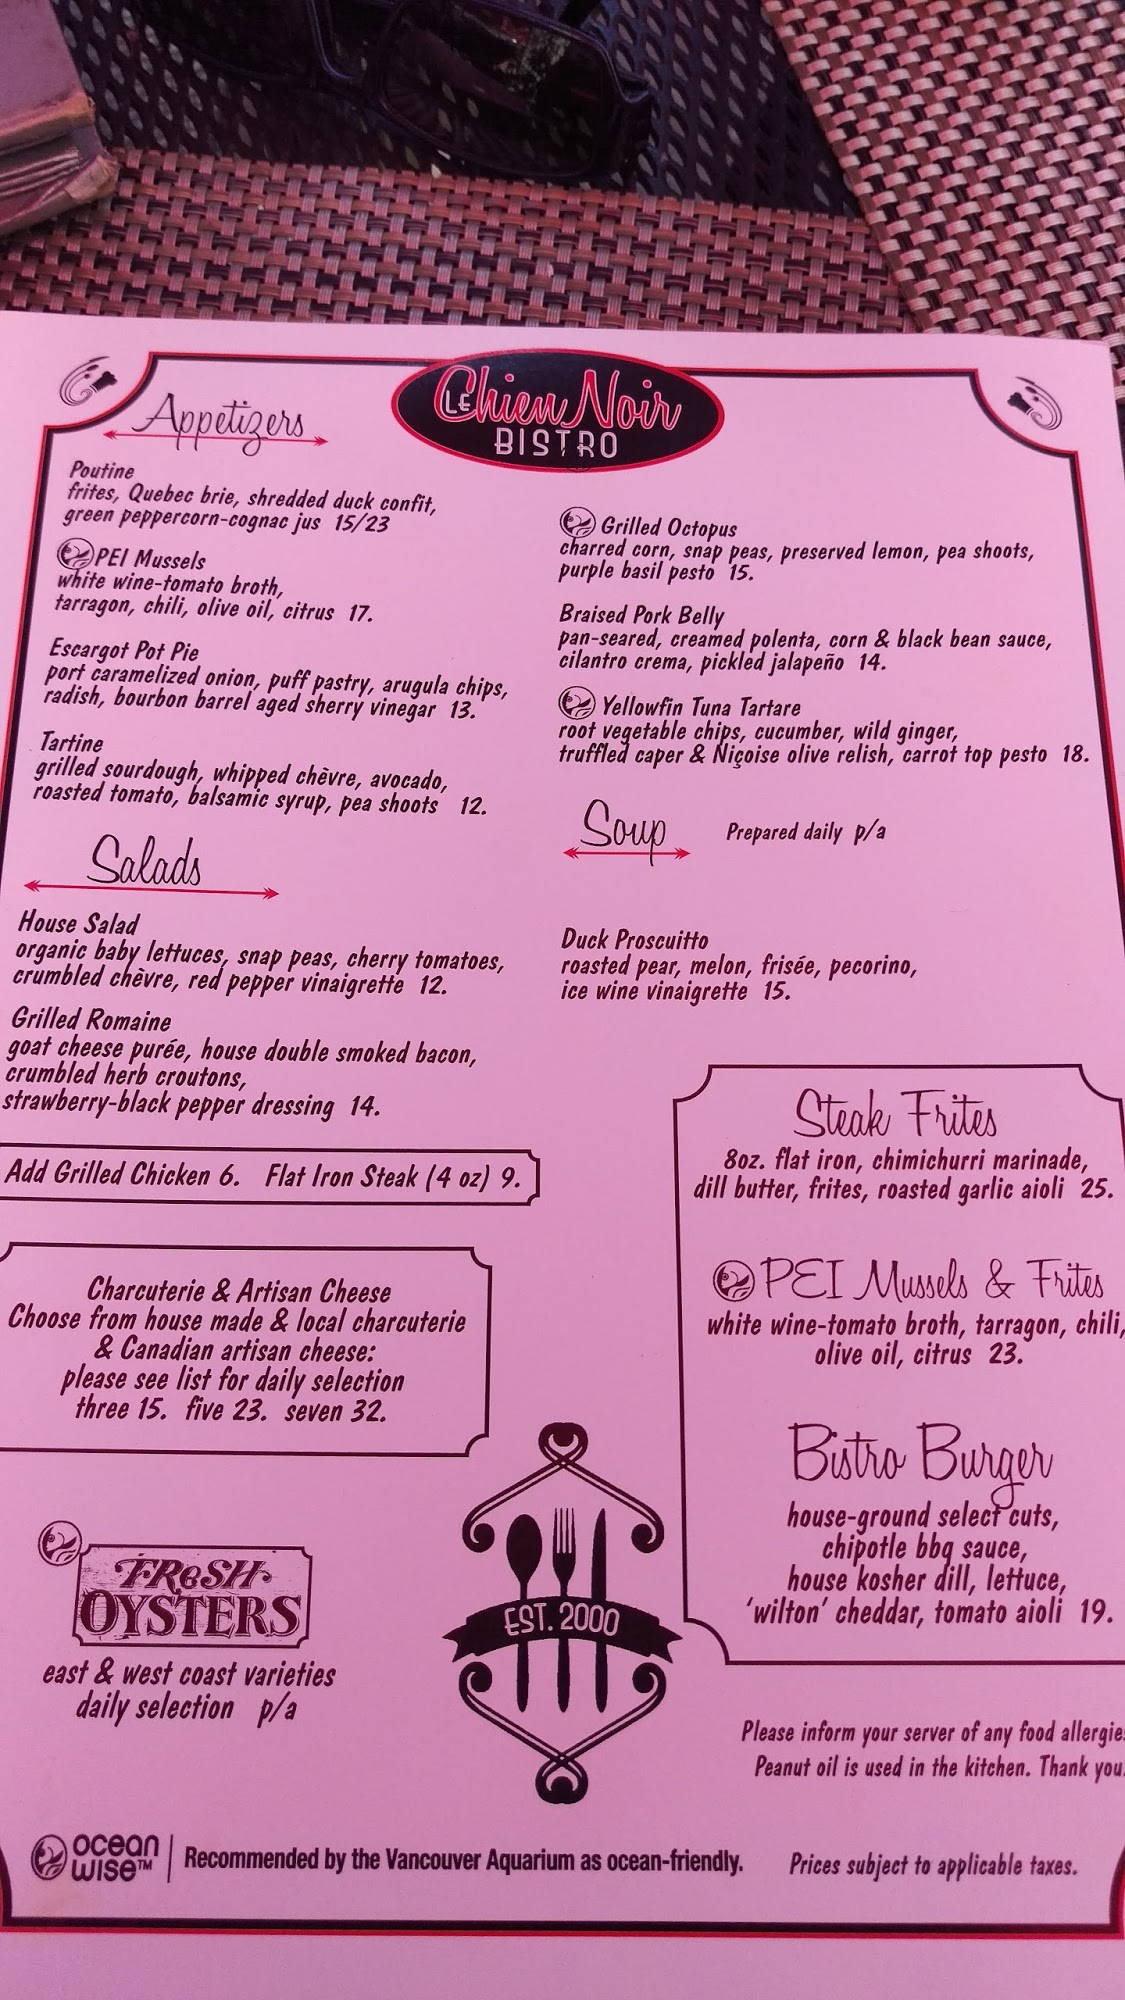 Le Chien Noir
BISTRO
Appetizers
Poutine
frites, Quebec brie, shredded duck confit,
green peppercorn-cognac jus 15/23
PEI Mussels
white wine-tomato broth,
tarragon, chili, olive oil, citrus 17.
Escargot Pot Pie
port caramelized onion, puff pastry, arugula chips,
radish, bourbon barrel aged sherry vinegar 13.
Tartine
grilled sourdough, whipped chèvre, avocado,
roasted tomato, balsamic syrup, pea shoots 12.
Grilled Octopus
charred corn, snap peas, preserved lemon, pea shoots,
purple basil pesto 15.
Braised Pork Belly
pan-seared, creamed polenta, corn & black bean sauce,
cilantro crema, pickled jalapeño 14.
Yellowfin Tuna Tartare
root vegetable chips, cucumber, wild ginger,
truffled caper & Niçoise olive relish, carrot top pesto 18.
Soup Prepared daily p/a
Salads
House Salad
organic baby lettuces, snap peas, cherry tomatoes,
crumbled chèvre, red pepper vinaigrette 12.
Grilled Romaine
goat cheese purée, house double smoked bacon,
crumbled herb croutons,
strawberry-black pepper dressing 14.
Duck Proscuitto
roasted pear, melon, frisée, pecorino,
ice wine vinaigrette 15.
Add Grilled Chicken 6. Flat Iron Steak (4 oz) 9.
Charcuterie & Artisan Cheese
Choose from house made & local charcuterie
& Canadian artisan cheese:
please see list for daily selection
three 15. five 23. seven 32.
Steak Frites
8oz. flat iron, chimichurri marinade,
dill butter, frites, roasted garlic aioli 25.
PEI Mussels & Frites
white wine-tomato broth, tarragon, chili,
olive oil, citrus 23.
Bistro Burger
house-ground select cuts,
chipotle bbq sauce,
house kosher dill, lettuce,
'wilton' cheddar, tomato aioli 19.
FReSH
OYSTERS
east & west coast varieties
daily selection p/a
EST. 2000
Please inform your server of any food allergie
Peanut oil is used in the kitchen. Thank you.
ocean
wise™
Recommended by the Vancouver Aquarium as ocean-friendly.
Prices subject to applicable taxes.